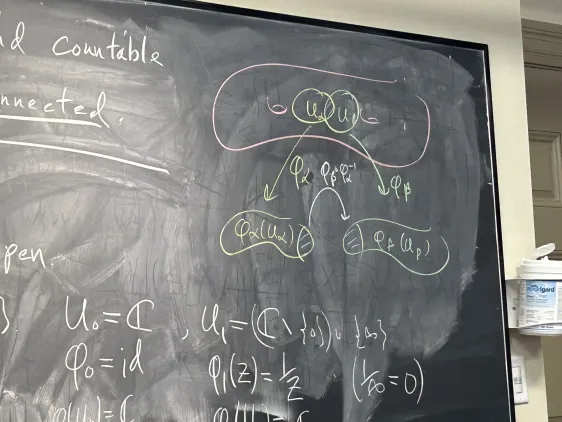 countable
nnected.
U_α U_β
φ_α φ_β∘φ_α^{-1} φ_β
φ_α(U_α) φ_β(U_β)
pen.
}. U_0 = ℂ , U_1 = (ℂ \ {0}) ∪ {∞}
φ_0 = id φ_1(z) = 1/z (1/∞ = 0)